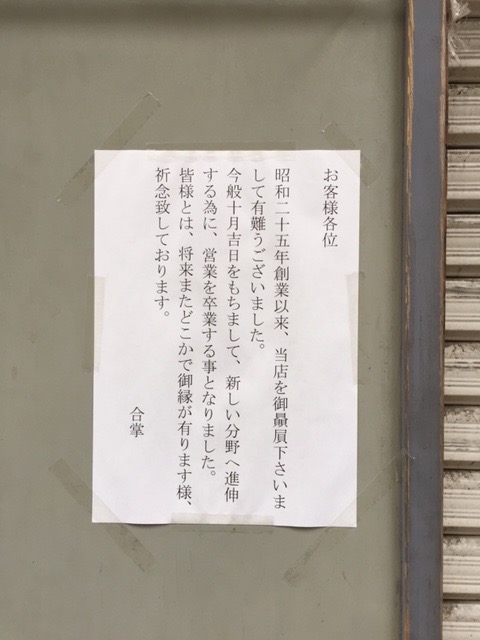 お客様各位
昭和二十五年創業以来、当店を御贔屓下さいま
して有難うございました。
今般十月吉日をもちまして、新しい分野へ進伸
する為に、営業を卒業する事となりました。
皆様とは、将来またどこかで御縁が有ります様、
祈念致しております。
合掌